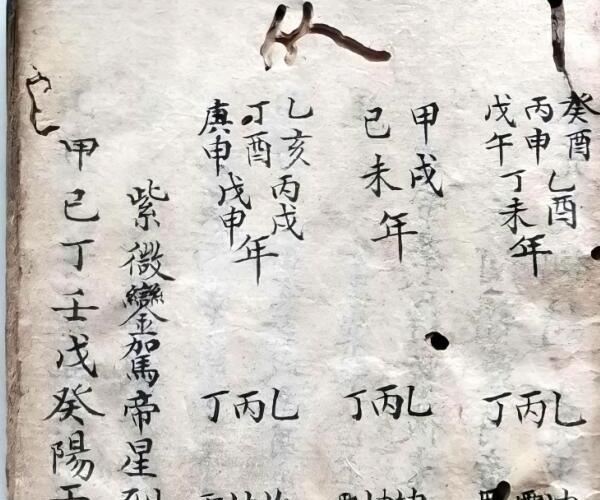 癸酉乙酉
丙申丁未年
戊午
乙丙丁
甲戌
己未年
乙丙丁
乙亥丙戌
丁酉
庚申戊申年
乙丙丁
紫微鑾駕帝星
甲己丁壬戊癸陽